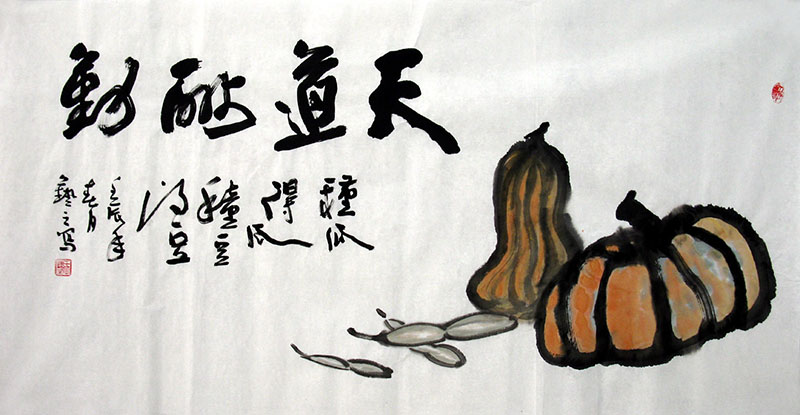 天道酬勤
種瓜
得瓜
種豆
得豆
壬辰年
春月
藝之写